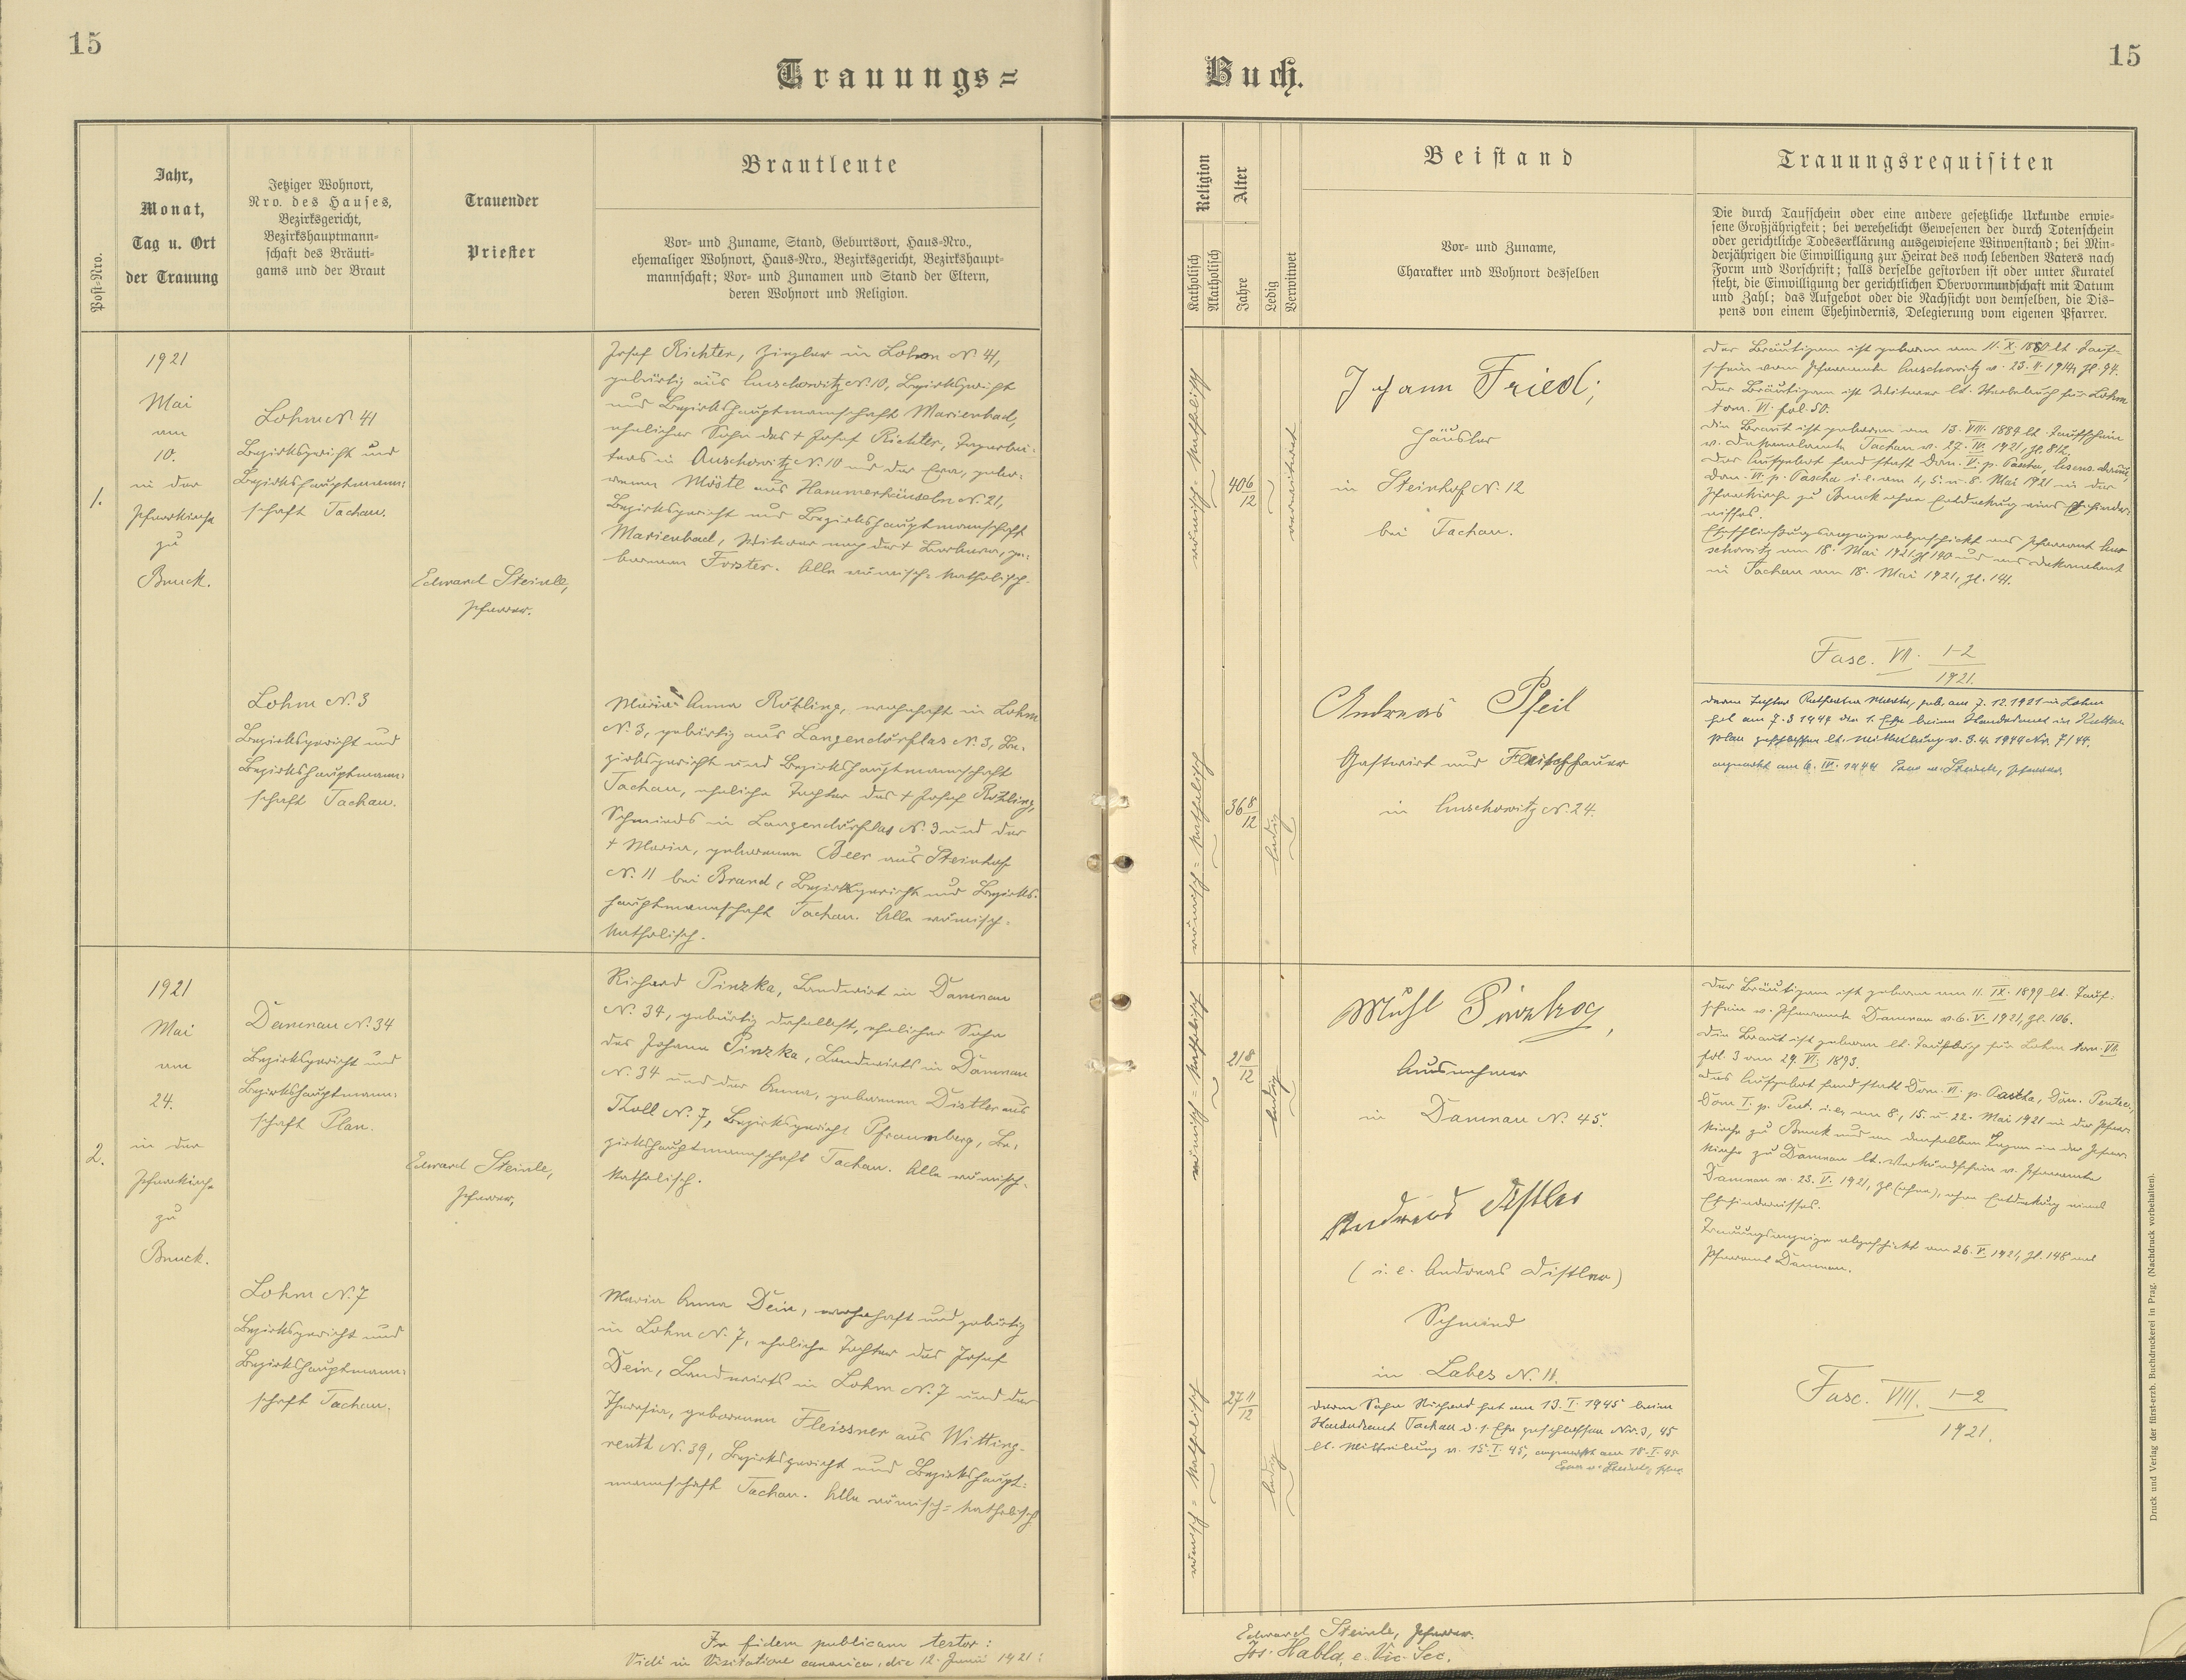 15
15
Trauungs=
Buch.
Post-Nro.
Jahr,
Monat,
Tag u. Ort
der Trauung
Jetziger Wohnort,
Nro. des Hauses,
Bezirksgericht,
Bezirkshauptmann-
schaft des Bräuti-
gams und der Braut
Trauender
Priester
Brautleute
Vor- und Zuname, Stand, Geburtsort, Haus-Nro.,
ehemaliger Wohnort, Haus-Nro., Bezirksgericht, Bezirkshaupt-
mannschaft; Vor- und Zunamen und Stand der Eltern,
deren Wohnort und Religion.
Religion
Katholisch
Akatholisch
Alter
Jahre
Ledig
Verwitwet
Beistand
Vor- und Zuname,
Charakter und Wohnort desselben
Trauungsrequisiten
Die durch Taufschein oder eine andere gesetzliche Urkunde erwie-
sene Großjährigkeit; bei verehelicht Gewesenen der durch Totenschein
oder gerichtliche Todeserklärung ausgewiesene Witwenstand; bei Min-
derjährigen die Einwilligung zur Heirat des noch lebenden Vaters nach
Form und Vorschrift; falls derselbe gestorben ist oder unter Kuratel
steht, die Einwilligung der gerichtlichen Obervormundschaft mit Datum
und Zahl; das Aufgebot oder die Nachsicht von demselben, die Dis-
pens von einem Ehehindernis, Delegierung vom eigenen Pfarrer.
1.
1921
Mai
am
10.
in der
Pfarrkirche
zu
Bruck.
Lohm N. 41
Bezirksgericht und
Bezirkshauptmann-
schaft Tachau.
Edward Steinle,
Pfarrer.
Josef Richter, Ziegler in Lohm N. 41,
gebürtig aus Auschowitz N. 10, Bezirksgericht
und Bezirkshauptmannschaft Marienbad,
ehelicher Sohn des † Josef Richter, Tagarbei-
ters in Auschowitz N. 10 und der Eva, gebo-
renen Möstl aus Hammerhäuseln N. 21,
Bezirksgericht und Bezirkshauptmannschaft
Marienbad, Witwer nach der † Barbara, ge-
borenen Forster. Alle römisch-katholisch.
römisch-katholisch
40 6/12
verwitwet
Johann Friedl;
Häusler
in Steinhof N. 12
bei Tachau.
Der Bräutigam ist geboren am 11. X. 1880 lt. Tauf-
schein vom Pfarramte Auschowitz v. 23. II. 1914, Zl. 94.
Der Bräutigam ist Witwer lt. Sterbebuch für Lohm
tom. VI. fol. 50.
Die Braut ist geboren am 13. VIII. 1884 lt. Taufschein
v. Dekanalamte Tachau v. 27. IV. 1921, Zl. 812.
Das Aufgebot fand statt Dom. V. p. Pascha,
Dom. VI. p. Pascha i. e. am 1., 5. u. 8. Mai 1921 in der
Pfarrkirche zu Bruck ohne Entdeckung eines Ehehinder-
nisses.
Eheschließungsanzeige abgeschickt ans Pfarramt Au-
schowitz am 18. Mai 1921, Zl. 140 und ans Dekanalamt
in Tachau am 18. Mai 1921, Zl. 141.
Fasc. VII. 1-2
1921.
Lohm N. 3
Bezirksgericht und
Bezirkshauptmann-
schaft Tachau.
Maria Anna Röhling, wohnhaft in Lohm
N. 3, gebürtig aus Langendörflas N. 3, Be-
zirksgericht und Bezirkshauptmannschaft
Tachau, eheliche Tochter des † Josef Röhling,
Schmieds in Langendörflas N. 3 und der
† Maria, geborenen Beer aus Steinhof
N. 11 bei Brand, Bezirksgericht und Bezirks-
hauptmannschaft Tachau. Alle römisch-
katholisch.
römisch-katholisch
36 8/12
ledig
Andreas Pfeil
Gastwirt und Fleischhauer
in Auschowitz N. 24.
Deren Tochter Katharina Maria, geb. am 7. 12. 1921 in Lohm
hat am 7. 3 1944 die 1. Ehe beim Standesamt in
geschlossen lt. Mitteilung v. 3. 4. 1944 Nr. 7/44.
2.
1921
Mai
am
24.
in der
Pfarrkirche
zu
Bruck.
Damnau N. 34
Bezirksgericht und
Bezirkshauptmann-
schaft Plan.
Edward Steinle,
Pfarrer.
Richard Pinzka, Landwirt in Damnau
N. 34, gebürtig daselbst, ehelicher Sohn
des Johann Pinzka, Landwirts in Damnau
N. 34 und der Anna, geborenen Distler aus
Tholl N. 7, Bezirksgericht Pfraumberg, Be-
zirkshauptmannschaft Tachau. Alle römisch-
katholisch.
römisch-katholisch
21 8/12
ledig
Ausnehmer
in Damnau N. 45.
Der Bräutigam ist geboren am 11. IX. 1899 lt. Tauf-
schein v. Pfarramte Damnau v. 6. V. 1921, Zl. 106.
Die Braut ist geboren lt. Taufbuch für Lohm tom. VII.
fol. 3 am 29. VI. 1893.
Das Aufgebot fand statt Dom. VI. p. Pascha, Dom. Pentec.,
Dom I. p. Pent. i. e. am 8., 15. u. 22. Mai 1921 in der Pfarr-
kirche zu Bruck und an denselben Tagen in der Pfarr-
kirche zu Damnau lt. Verkündschein v. Pfarramte
Damnau v. 23. V. 1921, Zl. (ohne), ohne Entdeckung eines
Ehehindernisses.
Trauungsanzeige abgeschickt am 26. V. 1921, Zl. 148 ans
Pfarramt Damnau.
Lohm N. 7
Bezirksgericht und
Bezirkshauptmann-
schaft Tachau.
Maria Anna Dein, wohnhaft und gebürtig
in Lohm N. 7, eheliche Tochter des Josef
Dein, Landwirts in Lohm N. 7 und der
Theresia, geborenen Fleissner aus Witting-
reuth N. 39, Bezirksgericht und Bezirkshaupt-
mannschaft Tachau. Alle römisch-katholisch
römisch-katholisch
27 11/12
ledig
Andreas Distler
(i. e. Andreas Distler)
Schmied
in Labes N. 11.
Deren Sohn Richard hat am 13. I. 1945 beim
Standesamt Tachau d. 1. Ehe geschlossen Nr. 3, 45
lt. Mitteilung v. 15. I. 45, angemerkt am 18. I. 45
Fasc. VIII. 1-2
1921.
In fidem publicam testor:
Edward Steinle, Pfarrer.
Vidi in Visitatione canonica, die 12. Junii 1921:
Jos. Habla, e. Vic. Sec.
Druck und Verlag der fürst-erzb. Buchdruckerei in Prag. (Nachdruck vorbehalten).